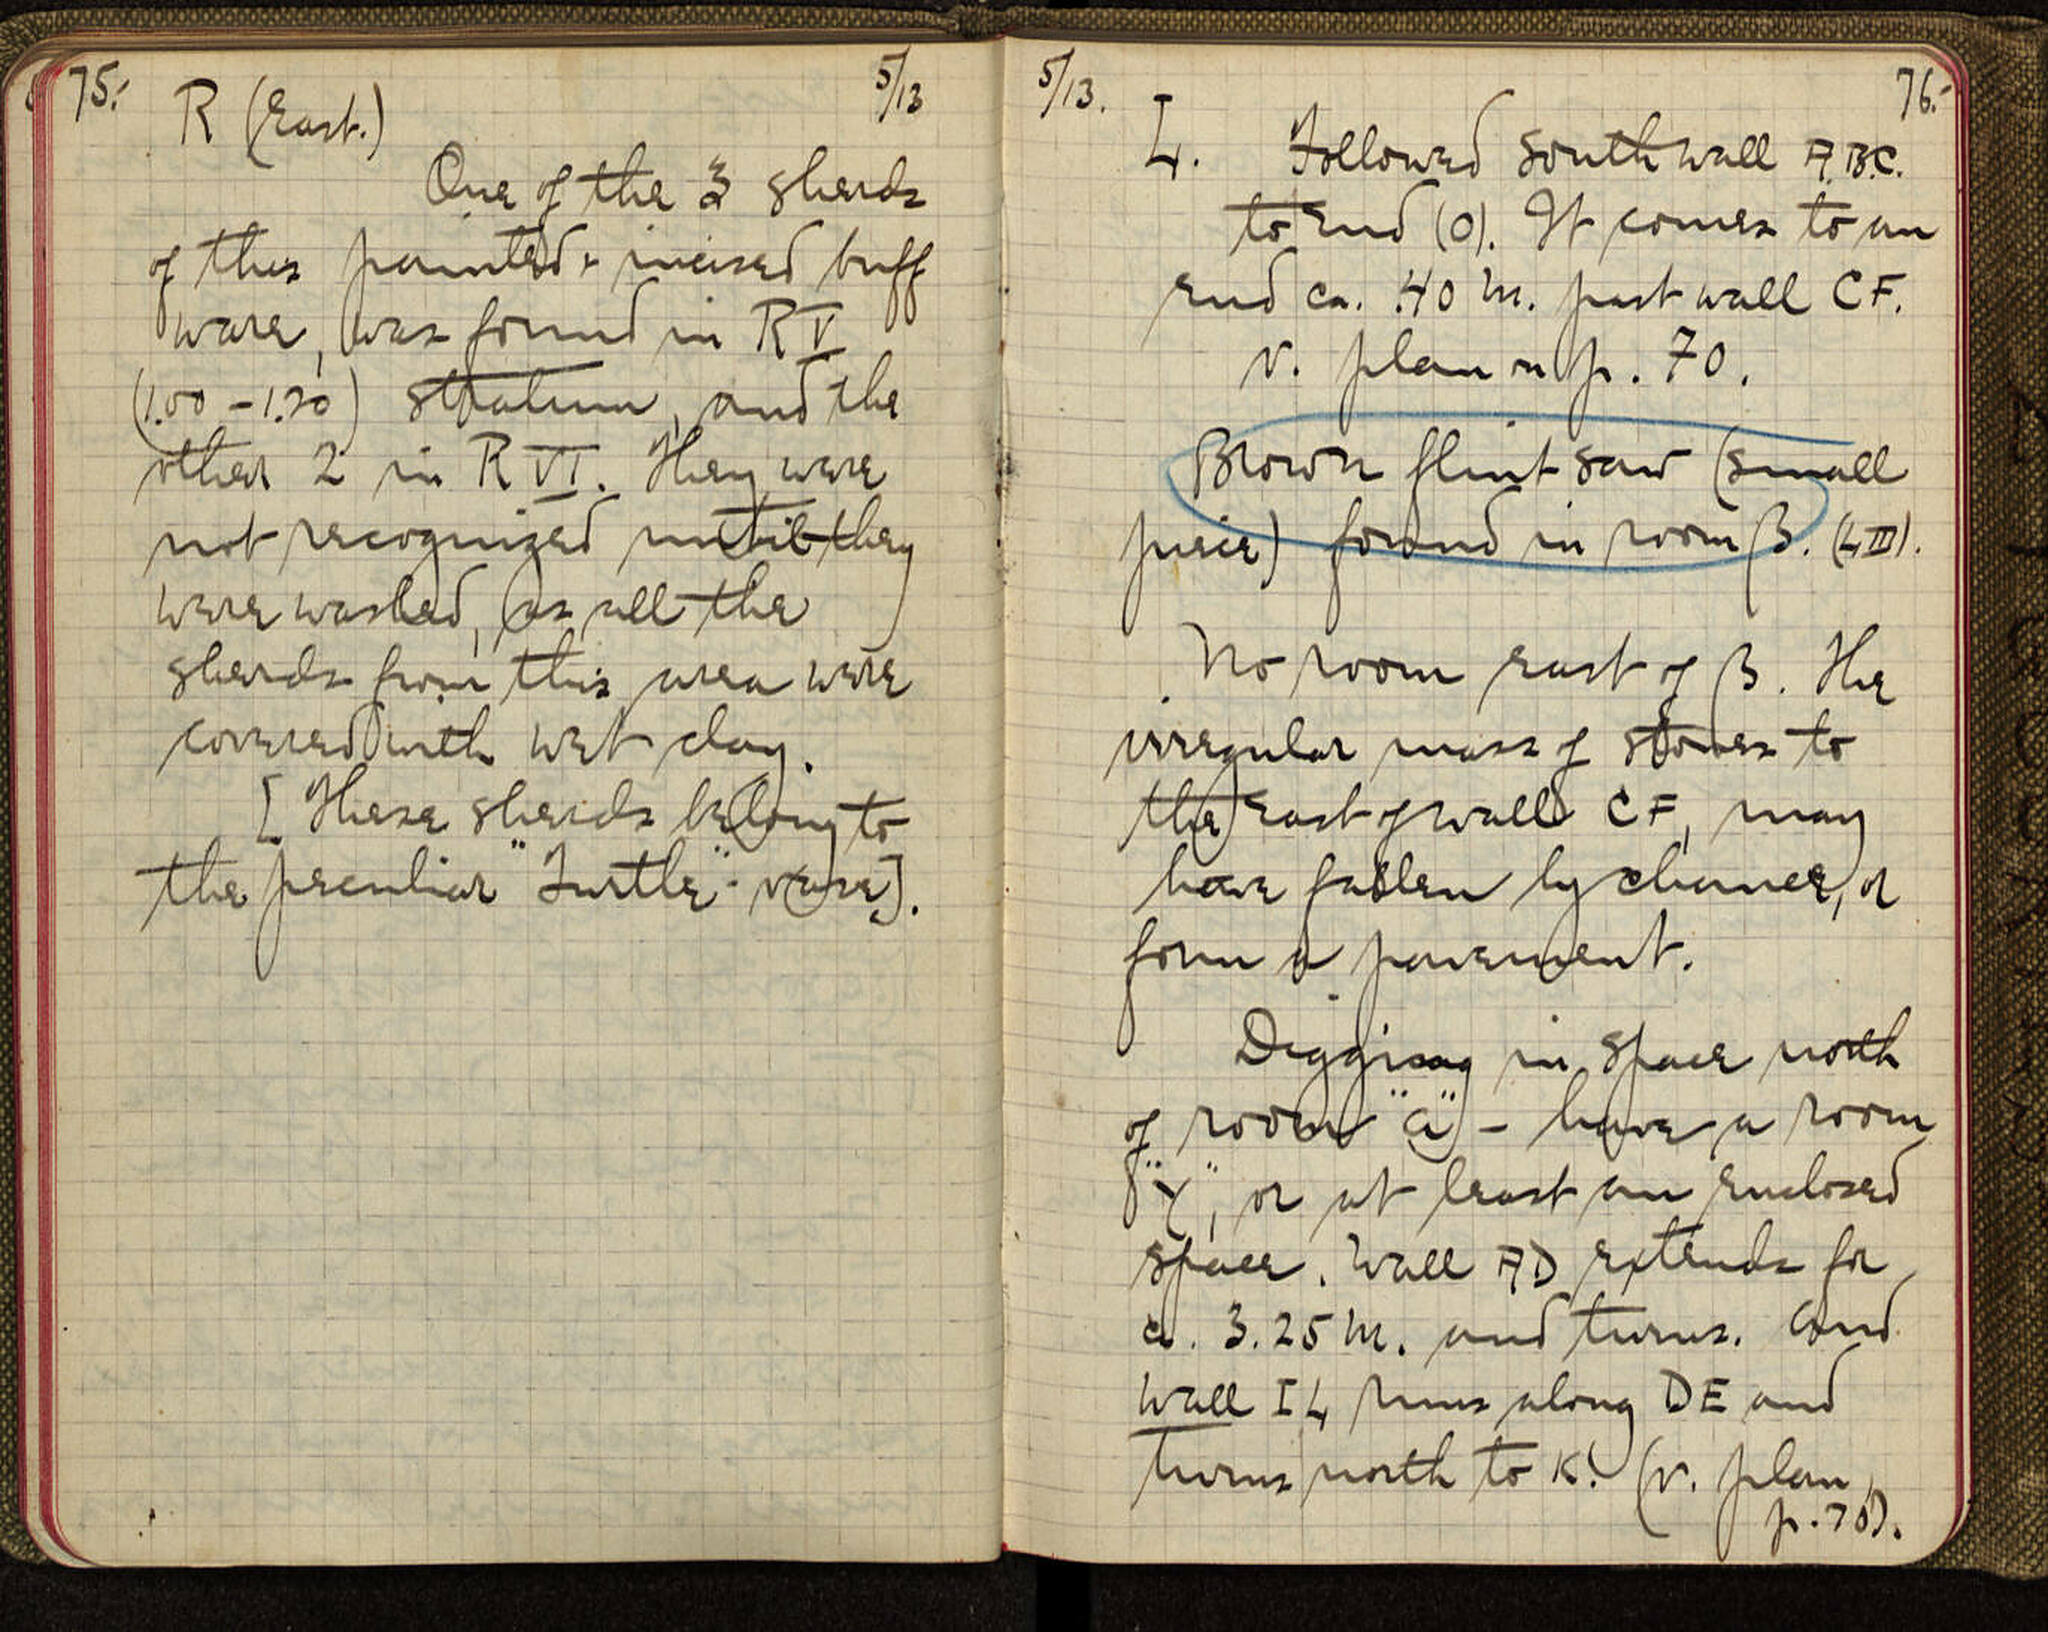 75.
5/13
R (East.)
One of the 3 sherds
of this painted + incised buff
ware, was found in R V
(1.00 - 1.20) stratum, and the
other 2 in R VI. They were
not recognized until they
were washed, as all the
sherds from this area were
covered with wet clay.
[These sherds belong to
the peculiar "Turtle"-vase].
5/13.
76.
L. Followed south wall A.B.C.
to end (O). It comes to an
end ca. .40 m. past wall CF.
v. plan on p. 70.
Brown flint saw (small
piece) found in room β. (L III).
No room east of β. The
irregular mass of stones to
the east of wall CF, may
have fallen by chance, or
form a pavement.
Digging in space north
of room "α" - have a room
"γ", or at least an enclosed
space. Wall AD extends for
ca. 3.25 m. and turns. And
wall IL runs along DE and
turns north to K. (v. plan
p. 70).